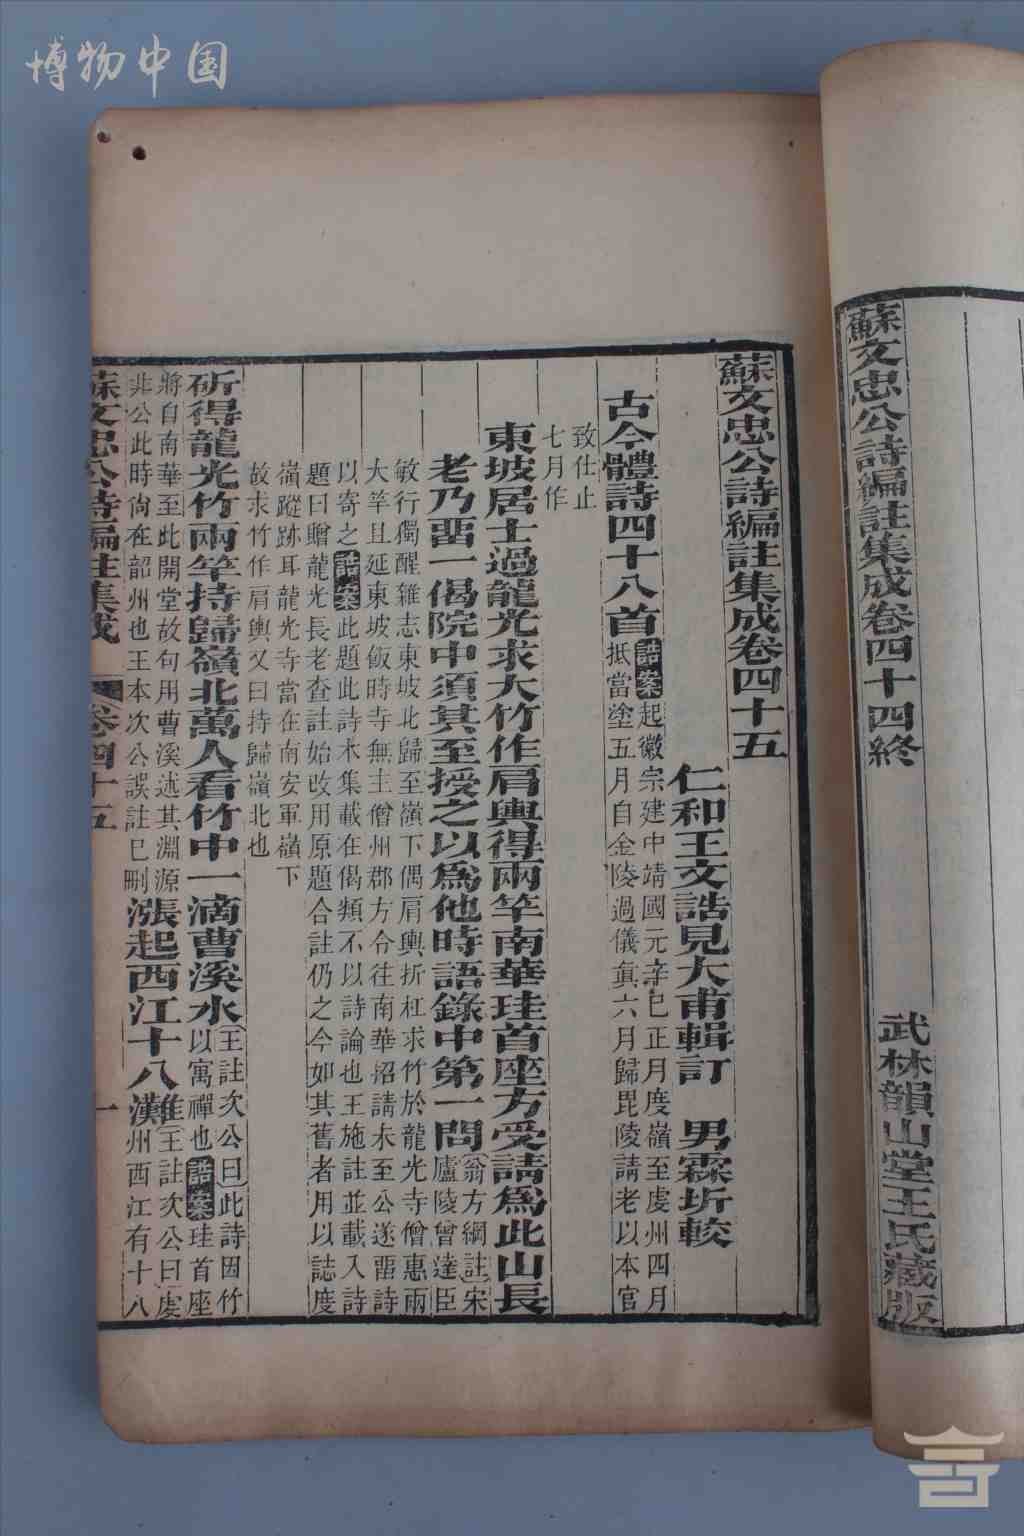 博物中国
蘇文忠公詩編註集成卷四十四終
武林韻山堂王氏藏版
蘇文忠公詩編註集成卷四十五
仁和王文誥見大甫輯訂 男霖圻較
古今體詩四十八首誥案起徽宗建中靖國元年辛巳正月度嶺至虔州四月
抵當塗五月自金陵過儀眞六月歸毘陵請老以本官
致仕止
七月作
東坡居士過龍光求大竹作肩輿得兩竿南華珪首座方受請爲此山長
老乃留一偈院中須其至授之以爲他時語錄中第一問翁方綱註宋
廬陵曾達臣
敏行獨醒雜志東坡北歸至嶺下偶肩輿折杠求竹於龍光寺僧惠兩
大竿且延東坡飯時寺無主僧州郡方令往南華招請未至公遂留詩
以寄之誥案此題此詩本集載在偈類不以詩論也王施註並載入詩
題曰贈龍光長老查註始改用原題合註仍之今如其舊者用以誌度
嶺蹤跡耳龍光寺當在南安軍嶺下
故求竹作肩輿又曰持歸嶺北也
斫得龍光竹兩竿持歸嶺北萬人看竹中一滴曹溪水王註次公曰此詩因竹
以寓禪也誥案珪首座
將自南華至此開堂故句用曹溪述其淵源
非公此時尙在韶州也王本次公誤註已刪漲起西江十八灘王註次公曰虔
州西江有十八
蘇文忠公詩編註集成 卷四十五 一